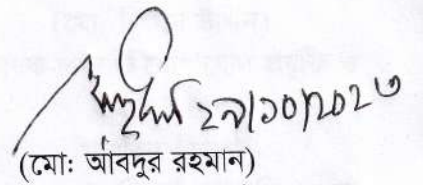 ২৯/১০/২০২৩
(মোঃ আবদুর রহমান)